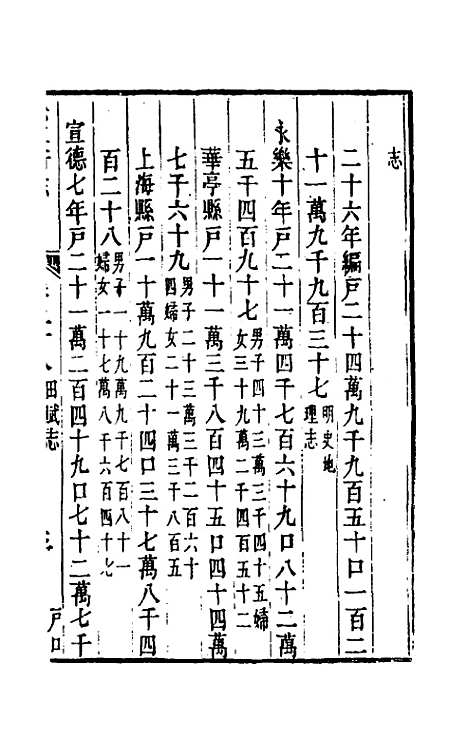 志
二十六年編戶二十四萬九千九百五十口一百二
十一萬九千九百三十七明史地
理志
永樂十年戶二十一萬四千七百六十九口八十二萬
五千四百九十七男子四十三萬三千四十五婦
女三十九萬二千四百五十二
華亭縣戶一十一萬三千八百四十五口四十四萬
七千六十九男子二十三萬三千二百六十
四婦女二十一萬三千八百五
上海縣戶一十萬九百二十四口三十七萬八千四
百二十八男子一十九萬九千七百八十一
婦女一十七萬八千六百四十七
宣德七年戶二十一萬二百四十九口七十二萬七千
田賦志
戶口